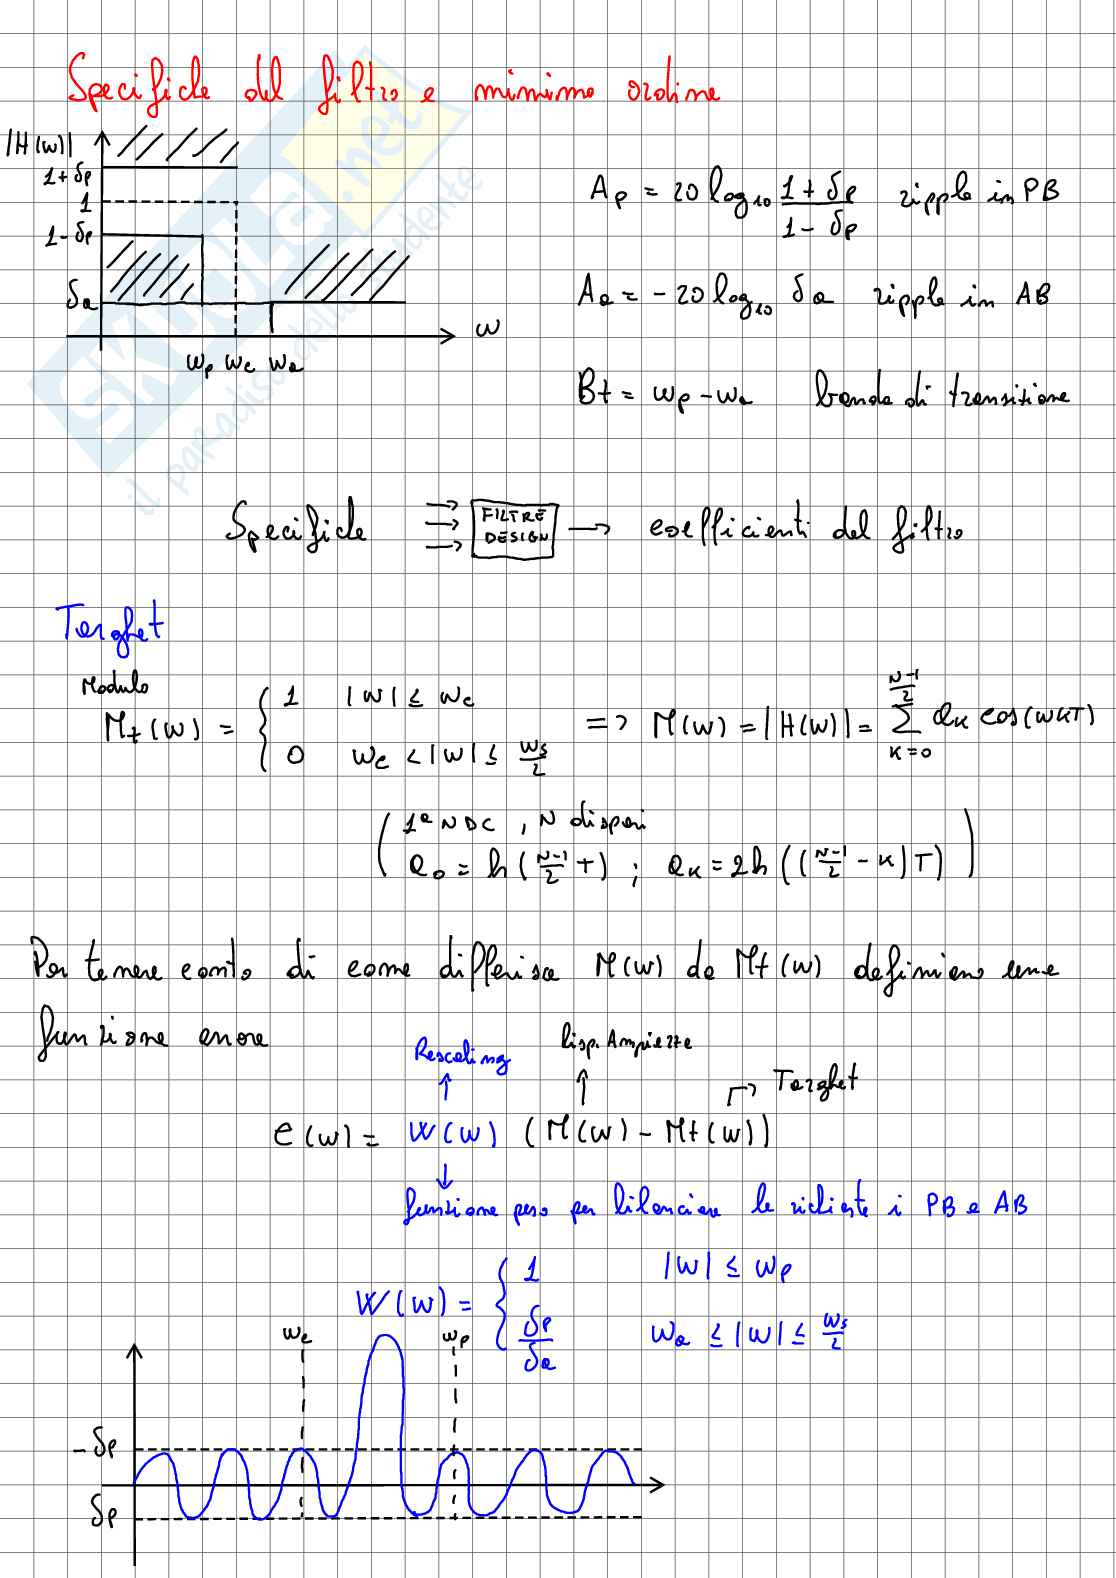 Specifiche del filtro e minimo ordine
|H(w)|
1+δp
1
1-δp
δa
wp wc wa
w
Ap = 20 log10 (1+δp)/(1-δp) ripple in PB
Aa = -20 log10 δa ripple in AB
Bt = wp - wa banda di transizione
Specifiche
FILTRE
DESIGN
coefficienti del filtro
Targhet
Modulo
Mt(w) = { 1 |w| ≤ wc
0 wc < |w| ≤ ws/2
=> M(w) = |H(w)| = Σ_{K=0}^{(N-1)/2} aK cos(wKT)
( 1ª NDC , N dispari
a0 = h((N-1)/2 T) ; aK = 2h(((N-1)/2 - K)T) )
Per tenere conto di come differisce M(w) da Mt(w) definiamo una
funzione errore
Rescaling
Risp. Ampiezza
Targhet
e(w) = W(w) (M(w) - Mt(w))
funzione peso per bilanciare le richieste i PB e AB
W(w) = { 1 |w| ≤ wp
δp/δa wa ≤ |w| ≤ ws/2
wc
wp
-δp
δp
SKUOLA.net
il paradiso dello studente